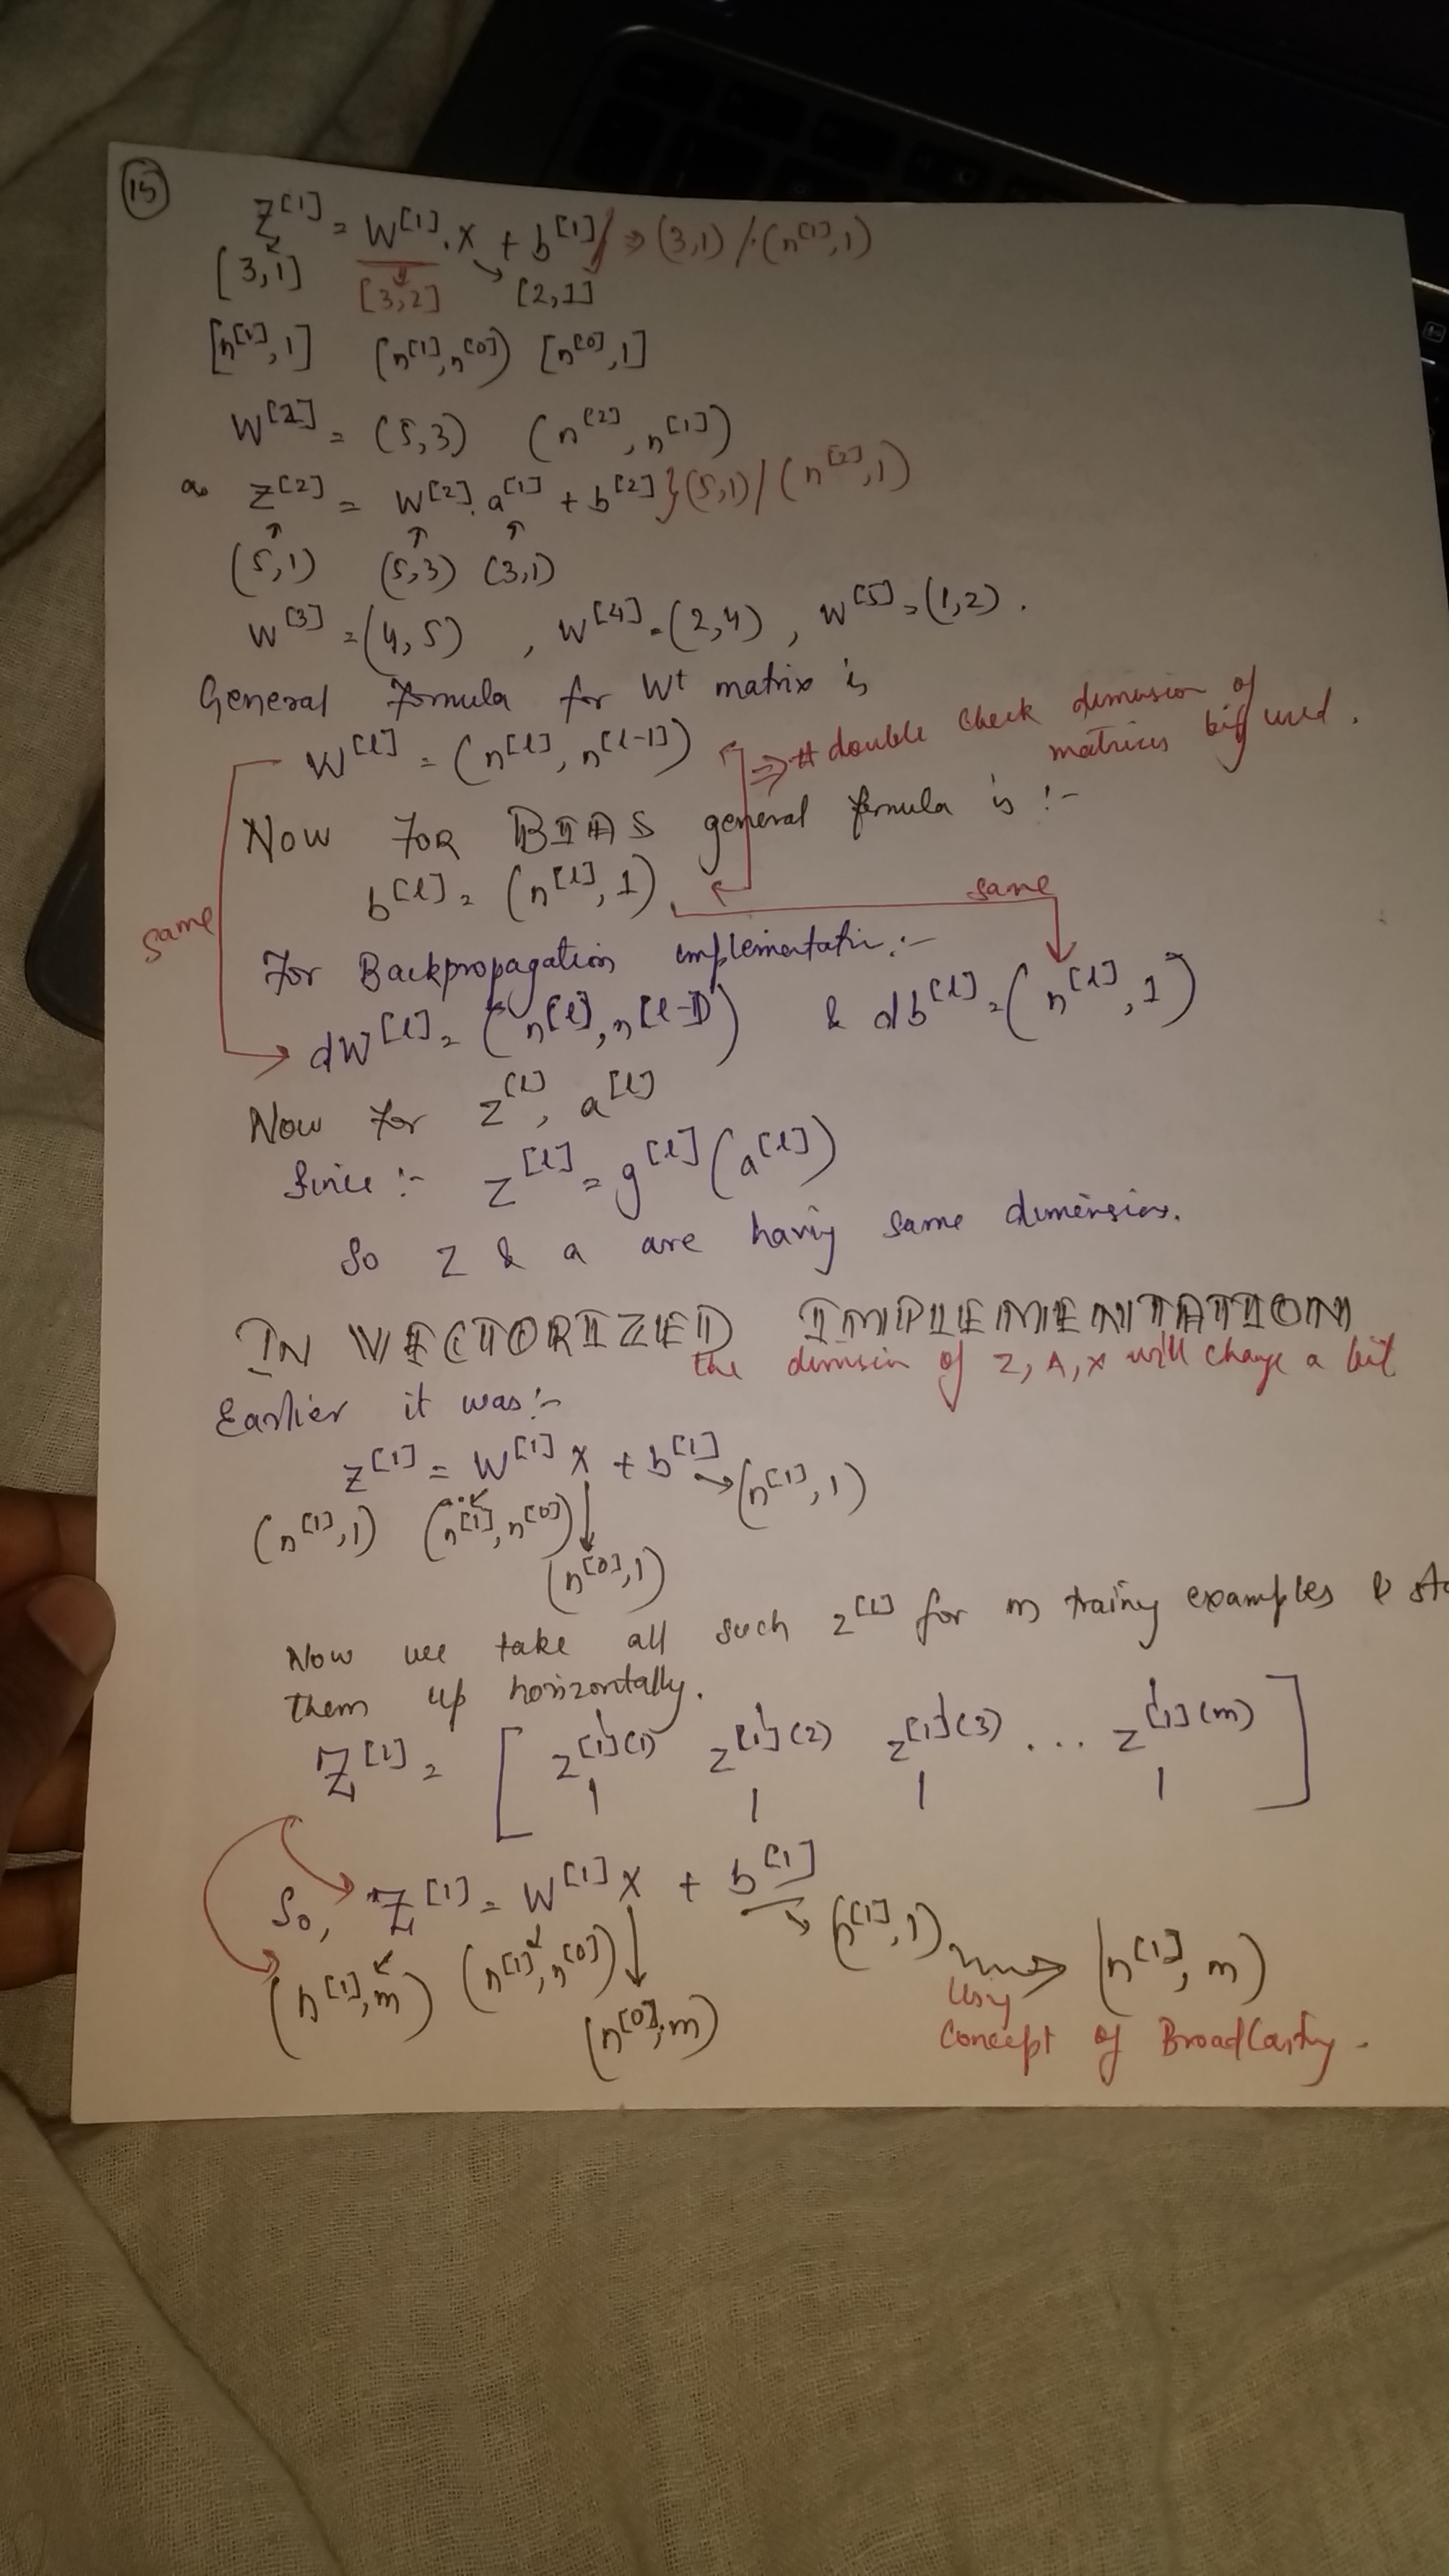 15
z[1] = W[1].x + b[1] ⇒ (3,1) / (n[1],1)
[3,1] [3,2] [2,1]
[n[1],1] (n[1],n[0]) [n[0],1]
W[2] = (5,3) (n[2],n[1])
z[2] = W[2].a[1] + b[2] } (5,1) / (n[2],1)
(5,1) (5,3) (3,1)
W[3] = (4,5) , W[4] = (2,4) , W[5] = (1,2) .
General Formula for Wt matrix is
W[l] = (n[l], n[l-1]) ⇒ # double check dimension of
matrices used .
Now FOR BIAS general formula is :-
b[l] = (n[l], 1) same
same
For Backpropagation implementati :-
dW[l] = (n[l], n[l-1]) & db[l] = (n[l], 1)
Now for z[l], a[l]
Since :- z[l] = g[l](a[l])
So z & a are havig same dimension.
IN VECTORIZED IMPLEMENTATION
the dimsin of z, A, x will change a bit
Earlier it was :-
z[1] = W[1] x + b[1] → (n[1], 1)
(n[1],1) (n[1],n[0])
(n[0],1)
Now we take all such z[1] for m trainig examples &
them up horizontally.
Z[1] = [ z[1](1) z[1](2) z[1](3) ... z[1](m) ]
So, Z[1] = W[1] X + b[1]
(n[1],m) (n[1],n[0]) (n[1],1) → (n[1], m)
(n[0],m) Usig
Concept of BroadCastig .